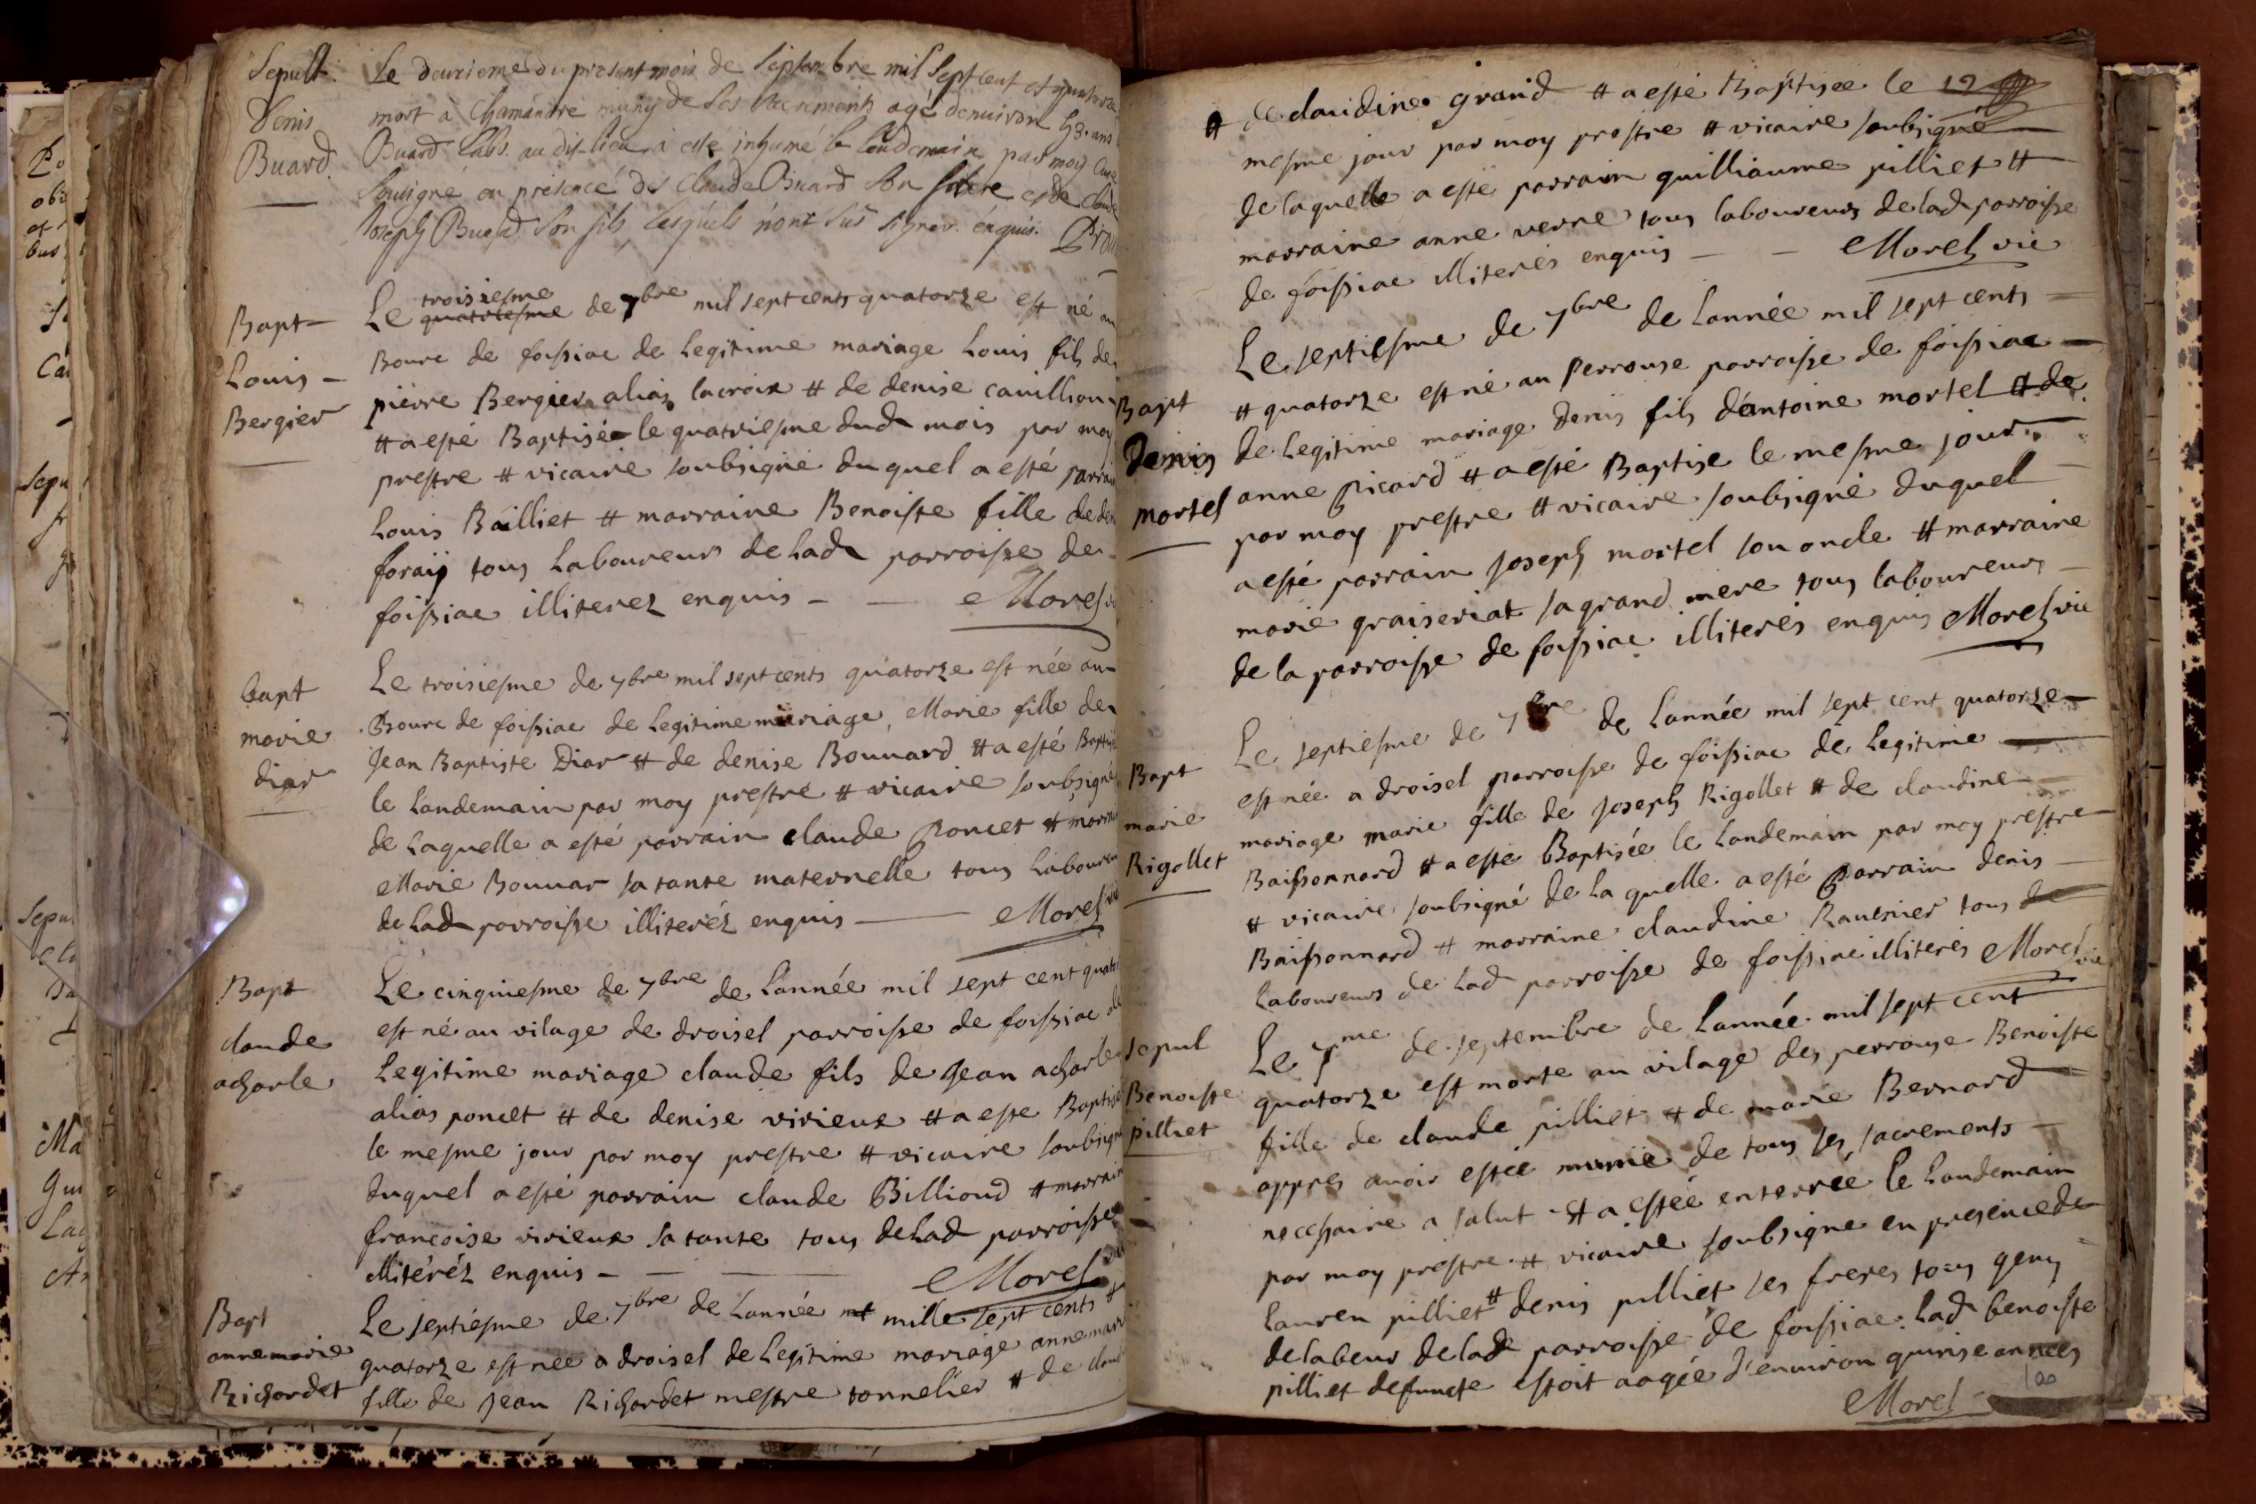 Sepult.
Denis
Buard.
Le deuxieme du present mois de Septembre mil Sept cent et quatorze
mort a Chamandre muny de Ses Sacrements agé denuiron 58. ans
Buard Labr. au dit lieu a esté inhumé le lendemain par moy Curé
Souigné en présence de Claude Buard Son frere et de Claude
Joseph Buard Son fils, lesquels n'ont Sus Signer enquis.
Bapt
Louis
Bergier
Le troisiesme quatriesme de 7bre mil sept cents quatorze est né au
Bourc de foissiac de Legitime mariage Louis fils de
pierre Bergier alias lacroix # de denise cauillion
# a esté Baptisée le quatriesme dud mois par moy
prestre # vicaire soubsigné duquel a esté parrain
Louis Bailliet # marraine Benoiste fille de
foraij tous Laboureurs de Lad parroisse de
foissiac illiterez enquis - Morel
bapt
marie
diar
Le troisiesme de 7bre mil sept cents quatorze est née au
Bourc de foissiac de Legitime mariage Marie fille de
Jean Baptiste Diar # de denise Bouuard # a esté Baptisée
le Landemain par moy prestre # vicaire soubsigné
de Laquelle a esté parrain claude Poncet # marraine
Marie Bouuar sa tante maternelle tous Laboureurs
de Lad parroisse illiteréz enquis - Morel vic
Bapt
claude
acharle
Le cinquiesme de 7bre de Lannée mil sept cent quatorze
est né au vilage de droisel parroisse de foissiac de
Legitime mariage claude fils de Jean acharle
alias poncet # de denise virieux # a esté Baptisé
le mesme jour par moy prestre # vicaire soubsigné
duquel a esté parrain claude Billioud # marraine
francoise virieux sa tante tous de Lad parroisse
illitéréz enquis - Morel
Bapt
annemarie
Richardet
Le septiésme de 7bre de Lannée mil mille sept cents #
quatorze est née a droisel de Legitime mariage annemarie
fille de Jean Richardet mestre tonnelier # de claud
# de claudine grand # a esté Baptisée le 12
mesme jour par moy prestre # vicaire soubsigné
de laquelle a esté parrain guilliaume pilliet #
marraine anne verne tous laboureurs de lad parroisse
de foissiac illiterés enquis - - Morel vic
Bapt
Denis
mortel
Le septiesme de 7bre de Lannée mil sept cents
# quatorze est né au perrouse parroisse de foissiac
de Legitime mariage denis fils dantoine mortel # de
anne picard # a esté Baptise le mesme jour
par moy prestre # vicaire soubsigné duquel
a esté parrain joseph mortel son oncle # marraine
marie graiseriat sa grand mere tous laboureurs
de la parroisse de foissiac illiterés enquis Morel vic
Bapt
marie
Rigollet
Le septiesme de 7bre de Lannée mil sept cent quatorze
est née a droisel parroisse de foissiac de Legitime
mariage marie fille de joseph Rigollet # de claudine
Baissonnard # a esté Baptisée le Landemain par moy prestre
# vicaire soubsigné de la quelle a esté parrain denis
Baissonnard # marraine claudine Rauenier tous de
Laboureurs de Lad parroisse de foissiac illiterés Morel vic
sepul
Benoiste
pilliet
Le 7me de septembre de Lannée mil sept cent
quatorze est morte au vilage des perrouse Benoiste
fille de claude pilliet # de marie Bernard
appres auoir estée munie de tous les sacrements
necessaire a salut # a estée enterrée le Landemain
par moy prestre # vicaire soubsigne en presence de
Lauren pilliet # denis pilliet ses freres tous gens
de labeur de lad parroisse de foissiac. Lad benoiste
pilliet defuncte estoit aagée d'enuiron quinse années
Morel